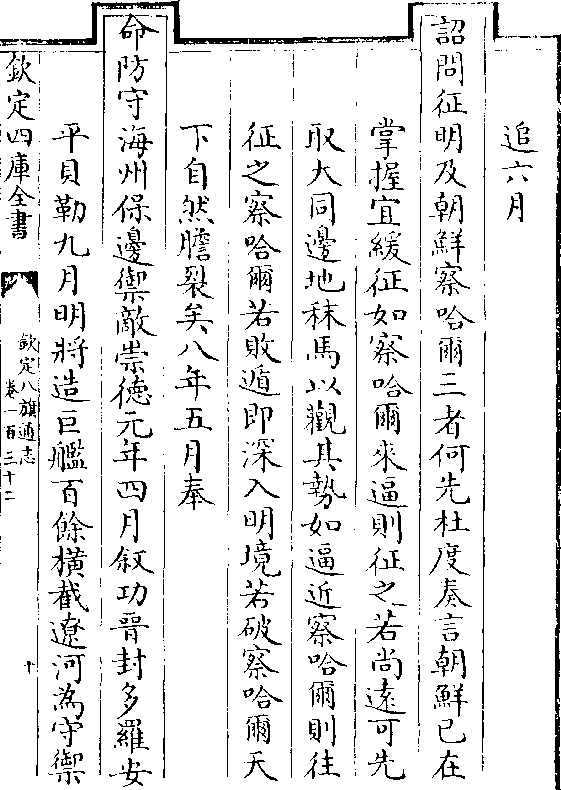 追六月
詔問征明及朝鮮察哈爾三者何先杜度奏言朝鮮已在
掌握宜緩征如察哈爾來逼則征之若尚遠可先
取大同邊地秣馬以觀其勢如逼近察哈爾則往
征之察哈爾若敗遁即深入明境若破察哈爾天
下自然膽裂矣八年五月奉
命防守海州保邊禦敵崇德元年四月叙功晉封多羅安
平貝勒九月明將造巨艦百餘橫截遼河為守禦
欽定四庫全書
欽定八旗通志
卷一百三十二
十